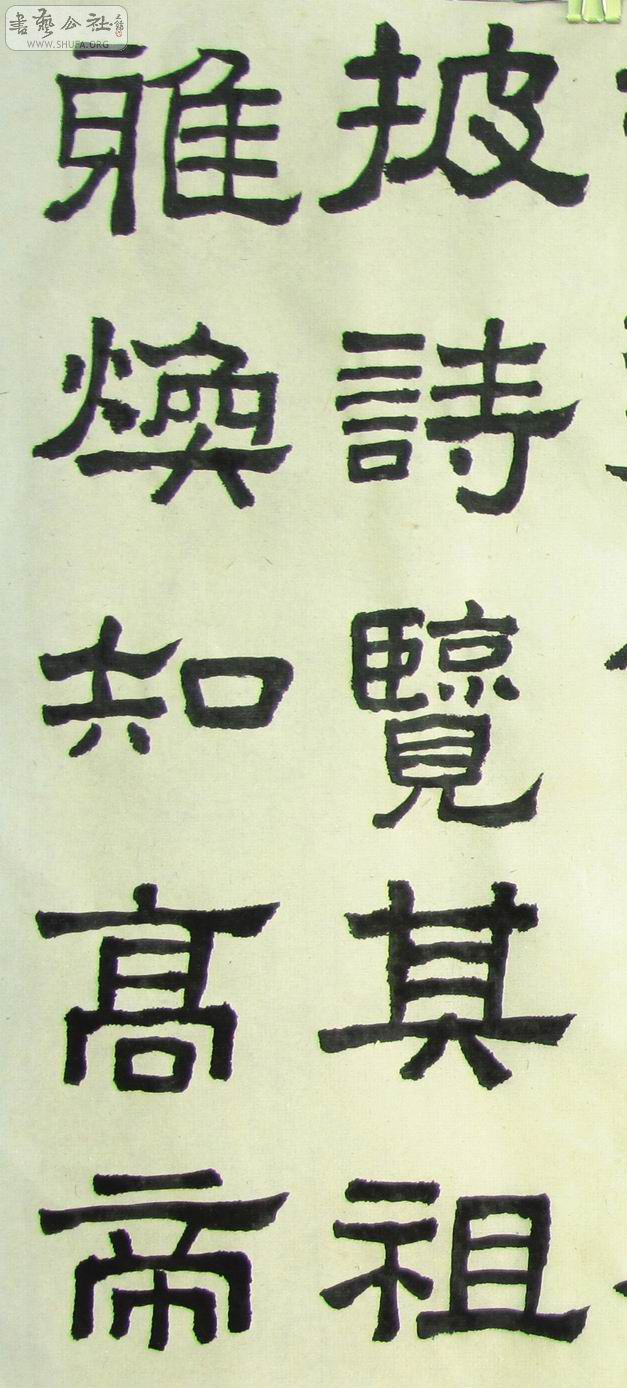 書藝公社
WWW.SHUFA.ORG
披詩覽其祖
雅煥知高帝